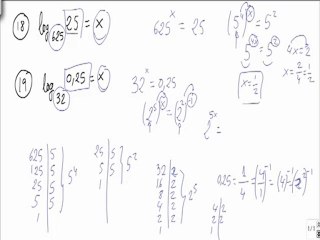 18 log₆₂₅ 25 = x
625ˣ = 25
(5⁴)ˣ = 5²
5⁴ˣ = 5²
4x = 2
x = 2/4 = 1/2
x = 1/2
19 log₃₂ 0,25 = x
32ˣ = 0,25
(2⁵)ˣ = (2²)⁻¹
2⁵ˣ
625 | 5
125 | 5
25 | 5
5 | 5
1
5⁴
25 | 5
5 | 5
1
5²
32 | 2
16 | 2
8 | 2
4 | 2
2 | 2
1
2⁵
0,25 = 1/4 = (4/1)⁻¹ = (4)⁻¹ = (2²)⁻¹
4 | 2
2 | 2
1
1/1